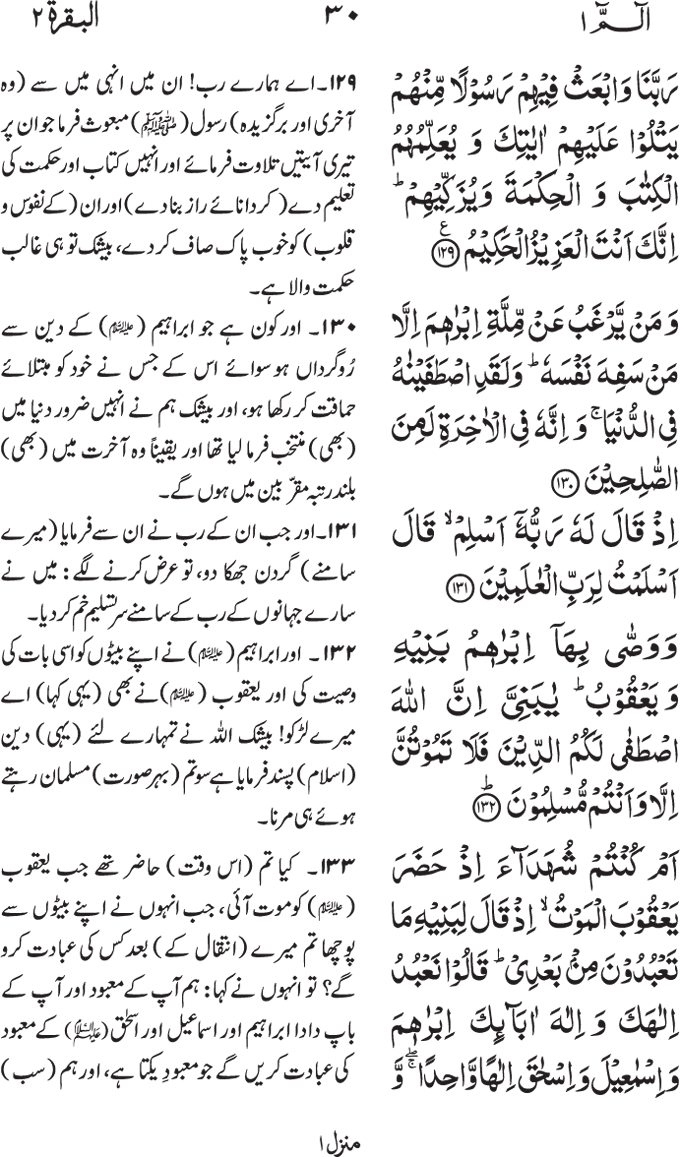 الٓمّٓ ١
٣٠
البقرة ٢
رَبَّنَا وَابْعَثْ فِيْهِمْ رَسُوْلًا مِّنْهُمْ
يَتْلُوْا عَلَيْهِمْ اٰيٰتِكَ وَ يُعَلِّمُهُمُ
الْكِتٰبَ وَ الْحِكْمَةَ وَيُزَكِّيْهِمْ ؕ
اِنَّكَ اَنْتَ الْعَزِيْزُ الْحَكِيْمُ ﴿١٢٩﴾ ع
وَ مَنْ يَّرْغَبُ عَنْ مِّلَّةِ اِبْرٰهٖمَ اِلَّا
مَنْ سَفِهَ نَفْسَهٗ ؕ وَلَقَدِ اصْطَفَيْنٰهُ
فِي الدُّنْيَا ۚ وَ اِنَّهٗ فِي الْاٰخِرَةِ لَمِنَ
الصّٰلِحِيْنَ ﴿١٣٠﴾
اِذْ قَالَ لَهٗ رَبُّهٗۤ اَسْلِمْ ۙ قَالَ
اَسْلَمْتُ لِرَبِّ الْعٰلَمِيْنَ ﴿١٣١﴾
وَ وَصّٰى بِهَاۤ اِبْرٰهٖمُ بَنِيْهِ
وَ يَعْقُوْبُ ؕ يٰبَنِيَّ اِنَّ اللّٰهَ
اصْطَفٰى لَكُمُ الدِّيْنَ فَلَا تَمُوْتُنَّ
اِلَّا وَ اَنْتُمْ مُّسْلِمُوْنَ ﴿١٣٢﴾ ؕ
اَمْ كُنْتُمْ شُهَدَآءَ اِذْ حَضَرَ
يَعْقُوْبَ الْمَوْتُ ۙ اِذْ قَالَ لِبَنِيْهِ مَا
تَعْبُدُوْنَ مِنْۢ بَعْدِيْ ؕ قَالُوْا نَعْبُدُ
اِلٰهَكَ وَ اِلٰهَ اٰبَآىِٕكَ اِبْرٰهٖمَ
وَ اِسْمٰعِيْلَ وَ اِسْحٰقَ اِلٰهًا وَّاحِدًا ۖۚ وَّ
١٢٩۔ اے ہمارے رب! ان میں انہی میں سے (وہ
آخری اور برگزیدہ) رسول (ﷺ) مبعوث فرما جو ان پر
تیری آیتیں تلاوت فرمائے اور انہیں کتاب اور حکمت کی
تعلیم دے (کر دانائے راز بنا دے) اور ان (کے نفوس و
قلوب) کو خوب پاک صاف کر دے، بیشک تو ہی غالب
حکمت والا ہے۔
١٣٠۔ اور کون ہے جو ابراہیم (علیہ السلام) کے دین سے
رُوگرداں ہو سوائے اس کے جس نے خود کو مبتلائے
حماقت کر رکھا ہو، اور بیشک ہم نے انہیں ضرور دنیا میں
(بھی) منتخب فرما لیا تھا اور یقیناً وہ آخرت میں (بھی)
بلند رتبہ مقرّبین میں ہوں گے۔
١٣١۔ اور جب ان کے رب نے ان سے فرمایا (میرے
سامنے) گردن جھکا دو، تو عرض کرنے لگے: میں نے
سارے جہانوں کے رب کے سامنے سرِ تسلیم خم کر دیا۔
١٣٢۔ اور ابراہیم (علیہ السلام) نے اپنے بیٹوں کو اسی بات کی
وصیت کی اور یعقوب (علیہ السلام) نے بھی (یہی کہا) اے
میرے لڑکو! بیشک اللہ نے تمہارے لئے (یہی) دین
(اسلام) پسند فرمایا ہے سو تم (بہرصورت) مسلمان رہتے
ہوئے ہی مرنا۔
١٣٣۔ کیا تم (اس وقت) حاضر تھے جب یعقوب
(علیہ السلام) کو موت آئی، جب انہوں نے اپنے بیٹوں سے
پوچھا تم میرے (انتقال کے) بعد کس کی عبادت کرو
گے؟ تو انہوں نے کہا: ہم آپ کے معبود اور آپ کے
باپ دادا ابراہیم اور اسماعیل اور اسحٰق (علیہم السلام) کے معبود
کی عبادت کریں گے جو معبودِ یکتا ہے، اور ہم (سب)
منزل ١